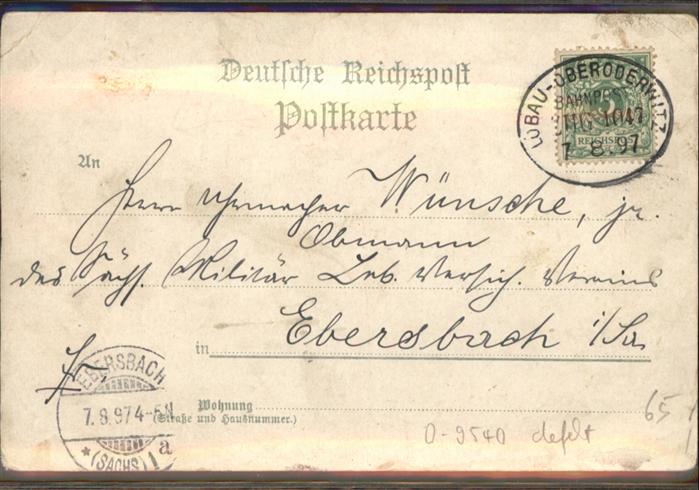 Deutsche Reichspost
Postkarte
LÖBAU-OBERODERWITZ
BAHNPOST
ZUG 1047
7 8.97
5
REICHSPOST
An
Herrn Uhrmacher Wünsche, jr.
Obmann
des Sächs. Militär Leb. Versich. Vereins
in Ebersbach i/Sa
EBERSBACH
7.8.97 4-5N
* (SACHS) 1 a
Wohnung
(Straße und Hausnummer.)
65
0-9540 defekt